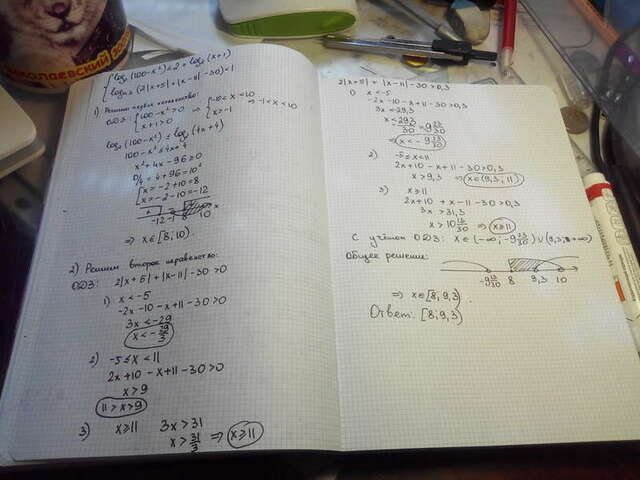 николаевский
{ log₂(100-x²) ≤ 2 + log₂(x+1)
{ log₀,₃(2|x+5| + |x-11| - 30) < 1
1) Решим первое неравенство:
ОДЗ: { 100-x² > 0 ⇒ { -10 < x < 10 ⇒ -1 < x < 10
{ x+1 > 0 { x > -1
log₂(100-x²) ≤ log₂(4x+4)
100-x² ≤ 4x+4
x²+4x-96 ≥ 0
D/4 = 4+96 = 10²
[ x = -2+10 = 8
[ x = -2-10 = -12
-12 -1 8 10 x
⇒ x ∈ [8; 10).
2) Решим второе неравенство:
ОДЗ: 2|x+5| + |x-11| - 30 > 0
1) x < -5
-2x-10-x+11-30 > 0
3x < -29
x < -29/3
2) -5 ≤ x < 11
2x+10-x+11-30 > 0
x > 9
11 > x > 9
3) x ≥ 11 3x > 31
x > 31/3 ⇒ x ≥ 11
2|x+5| + |x-11| - 30 > 0,3
1) x < -5
-2x-10-x+11-30 > 0,3
3x < -29,3
x < -293/30 = -9 23/30
⇒ x < -9 23/30
2) -5 ≤ x < 11
2x+10-x+11-30 > 0,3
x > 9,3 ⇒ x ∈ (9,3; 11)
3) x ≥ 11
2x+10+x-11-30 > 0,3
3x > 31,3
x > 10 13/30 ⇒ x ≥ 11
С учётом ОДЗ: x ∈ (-∞; -9 23/30) ∪ (9,3; +∞)
Общее решение:
-9 23/30 8 9,3 10
⇒ x ∈ [8; 9,3).
Ответ: [8; 9,3)